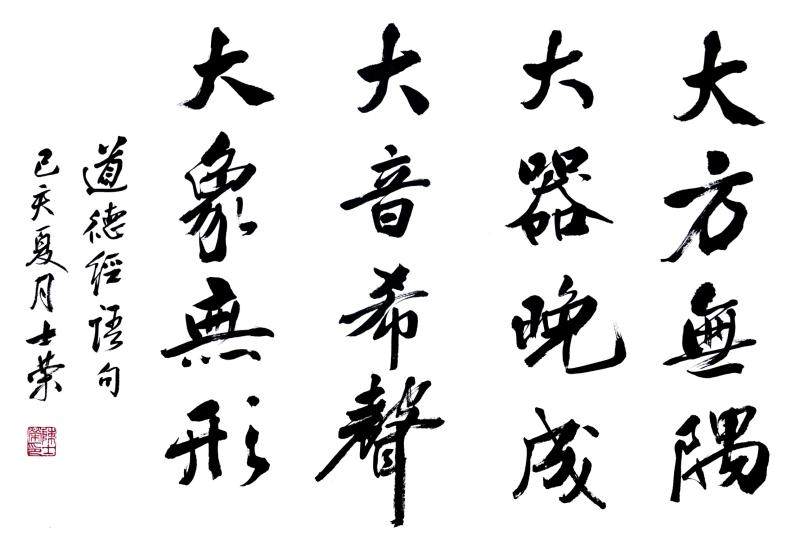 大方無隅
大器晚成
大音希聲
大象無形
道德經語句
己亥夏月士榮
陳士榮印